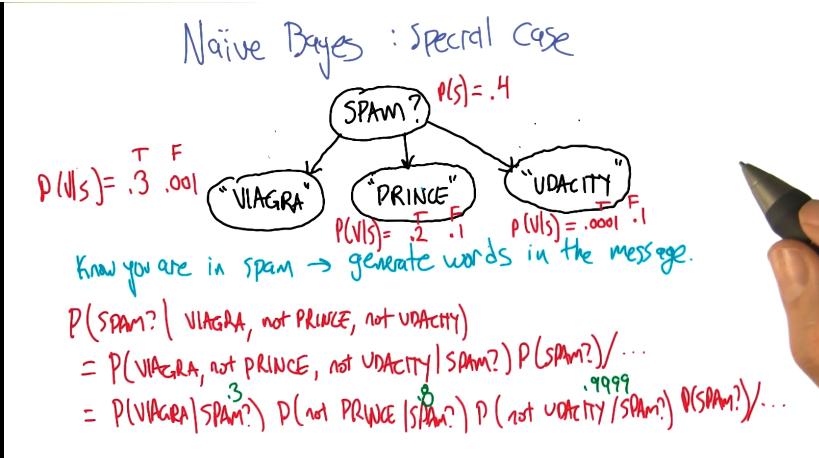 Naïve Bayes : special case
SPAM? P(S)= .4
T F
P(V|S)= .3 .001
"VIAGRA" "PRINCE" "UDACITY"
T F T F
P(V|S)= .2 .1 P(V|S)= .0001 .1
Know you are in spam → generate words in the message.
P(SPAM?| VIAGRA, not PRINCE, not UDACITY)
= P(VIAGRA, not PRINCE, not UDACITY|SPAM?) P(SPAM?)/...
.3 .8 .9999
= P(VIAGRA|SPAM?) P(not PRINCE|SPAM?) P(not UDACITY/SPAM?) P(SPAM?)/...